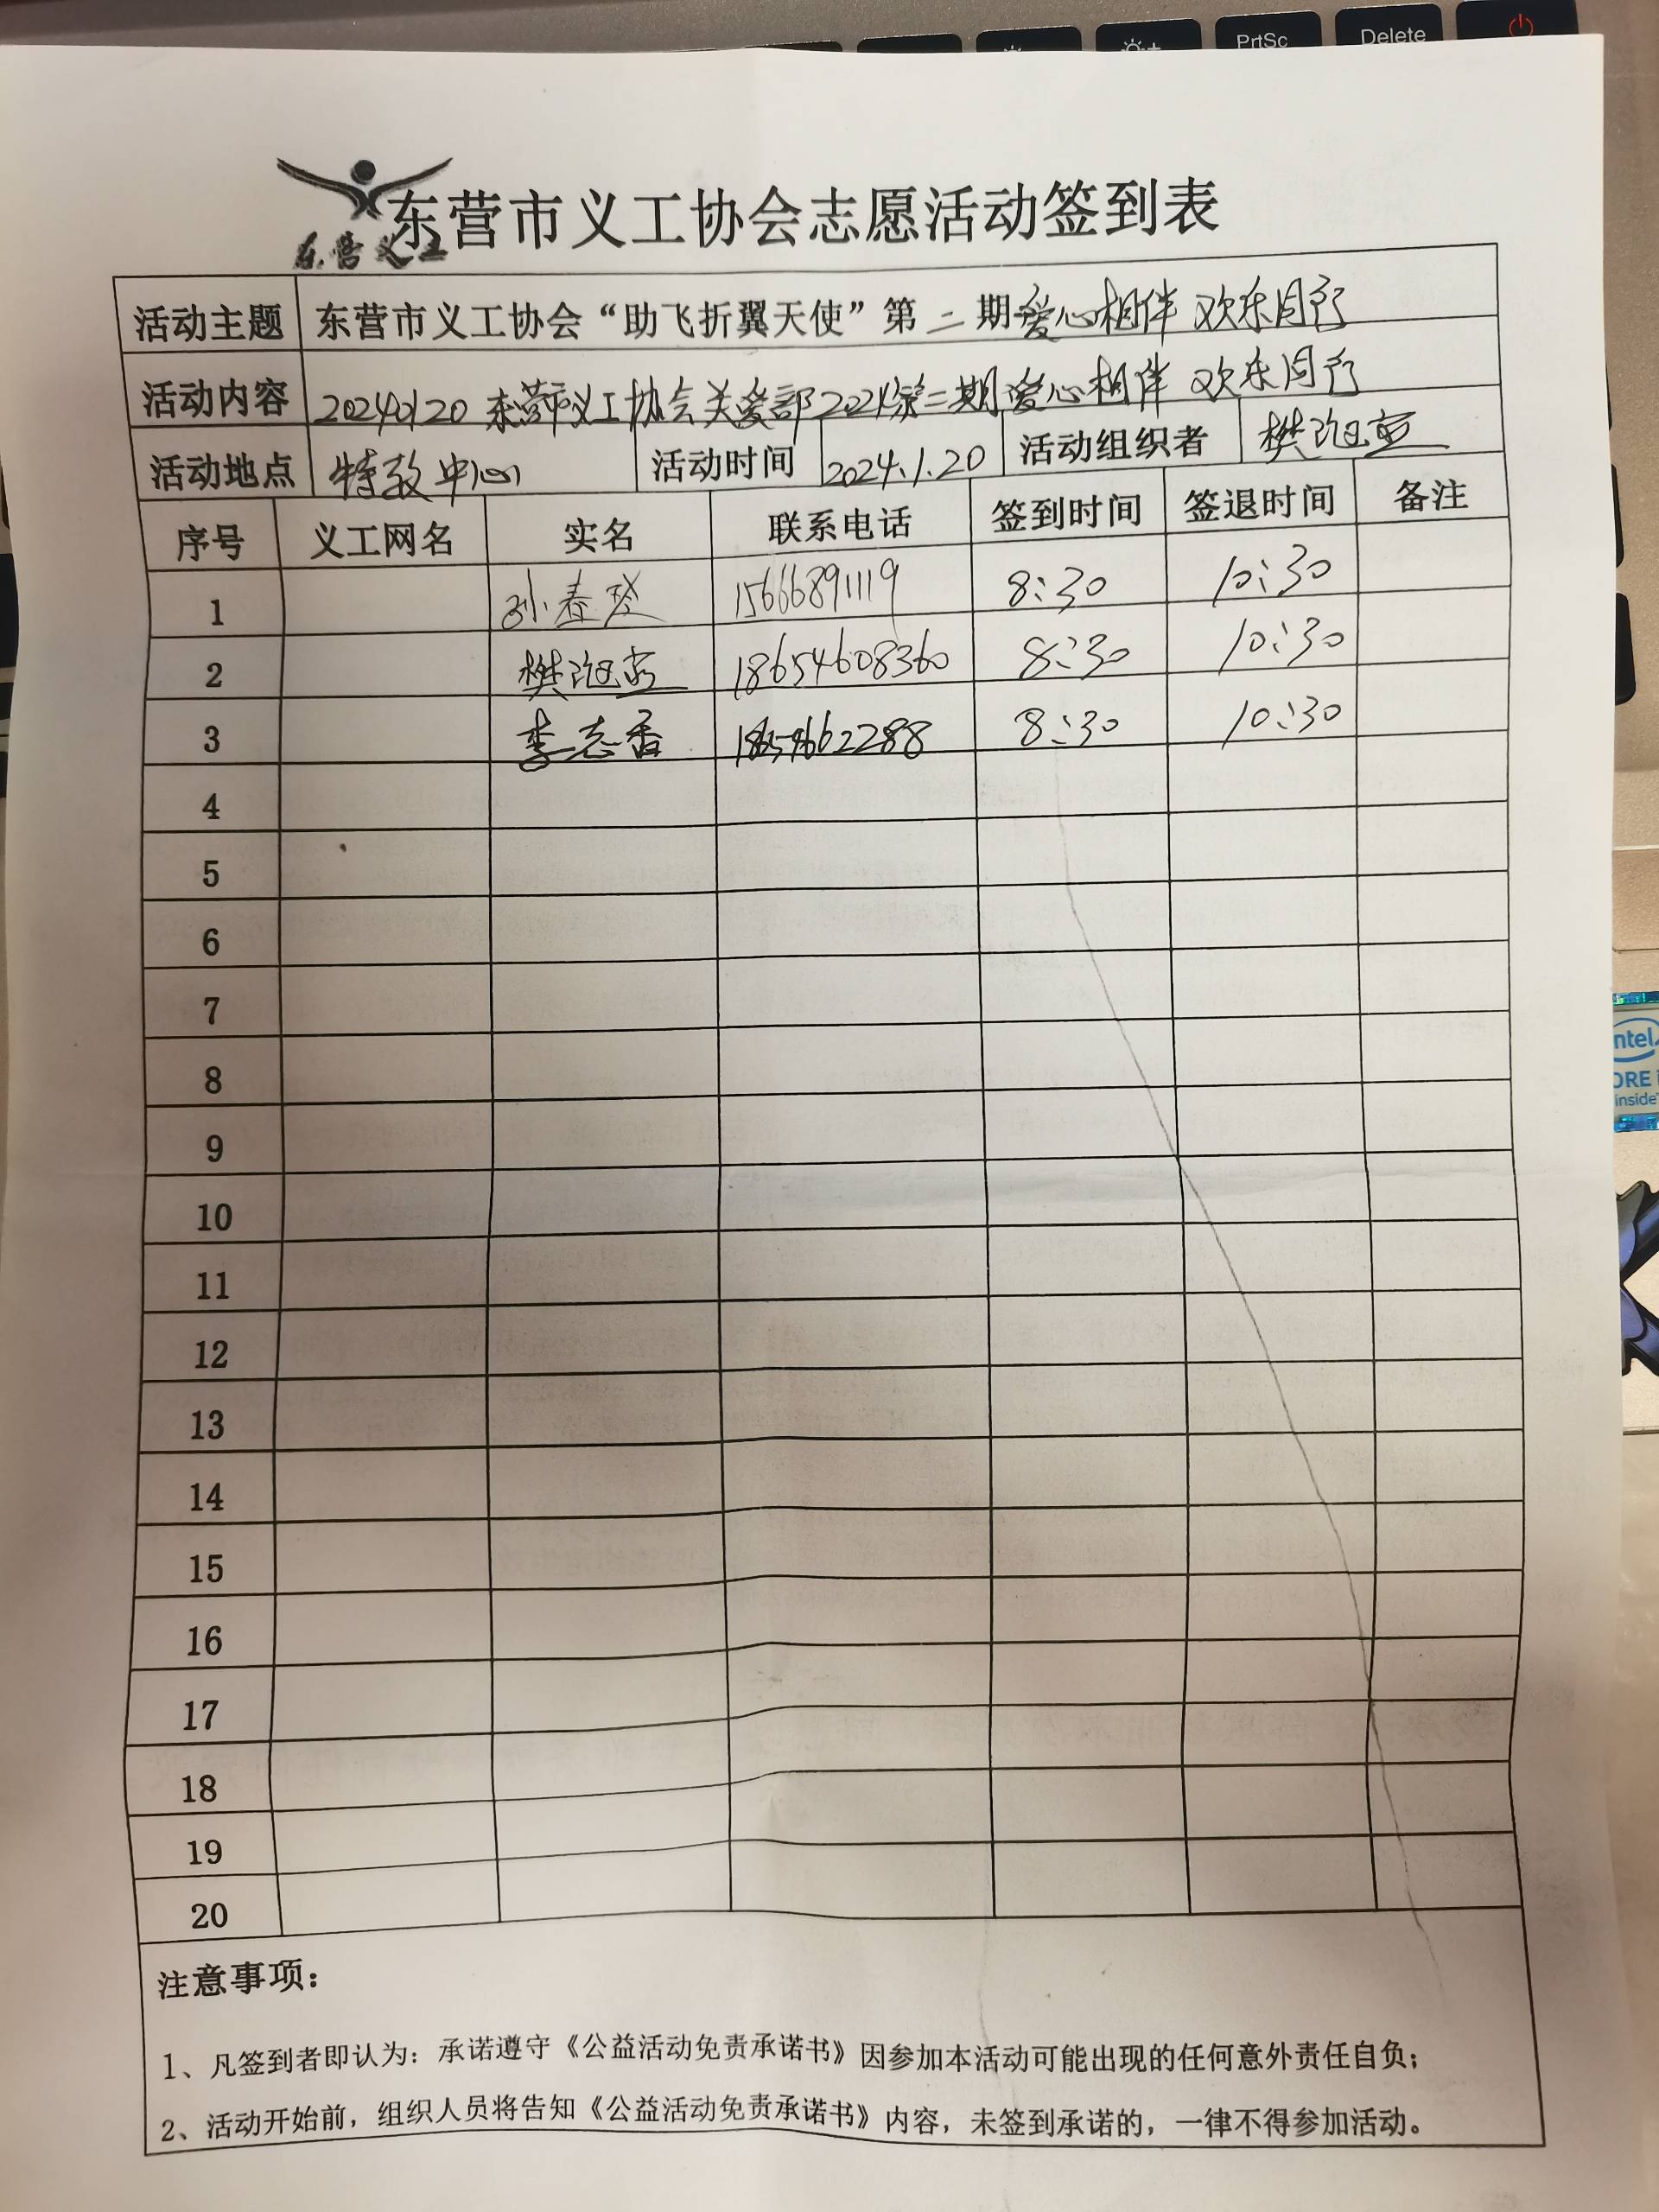 PrtSc Delete
东营义工
东营市义工协会志愿活动签到表
活动主题 东营市义工协会“助飞折翼天使”第二期爱心相伴 欢乐同行
活动内容 20240120东营市义工协会关爱部2024第二期爱心相伴 欢乐同行
活动地点 特教中心 活动时间 2024.1.20 活动组织者 樊
序号 义工网名 实名 联系电话 签到时间 签退时间 备注
1 孙春 15666891119 8:30 10:30
2 樊 18654608360 8:30 10:30
3 李志香 8:30 10:30
4
5
6
7
8
9
10
11
12
13
14
15
16
17
18
19
20
注意事项：
1、凡签到者即认为：承诺遵守《公益活动免责承诺书》因参加本活动可能出现的任何意外责任自负；
2、活动开始前，组织人员将告知《公益活动免责承诺书》内容，未签到承诺的，一律不得参加活动。
intel
CORE i
inside